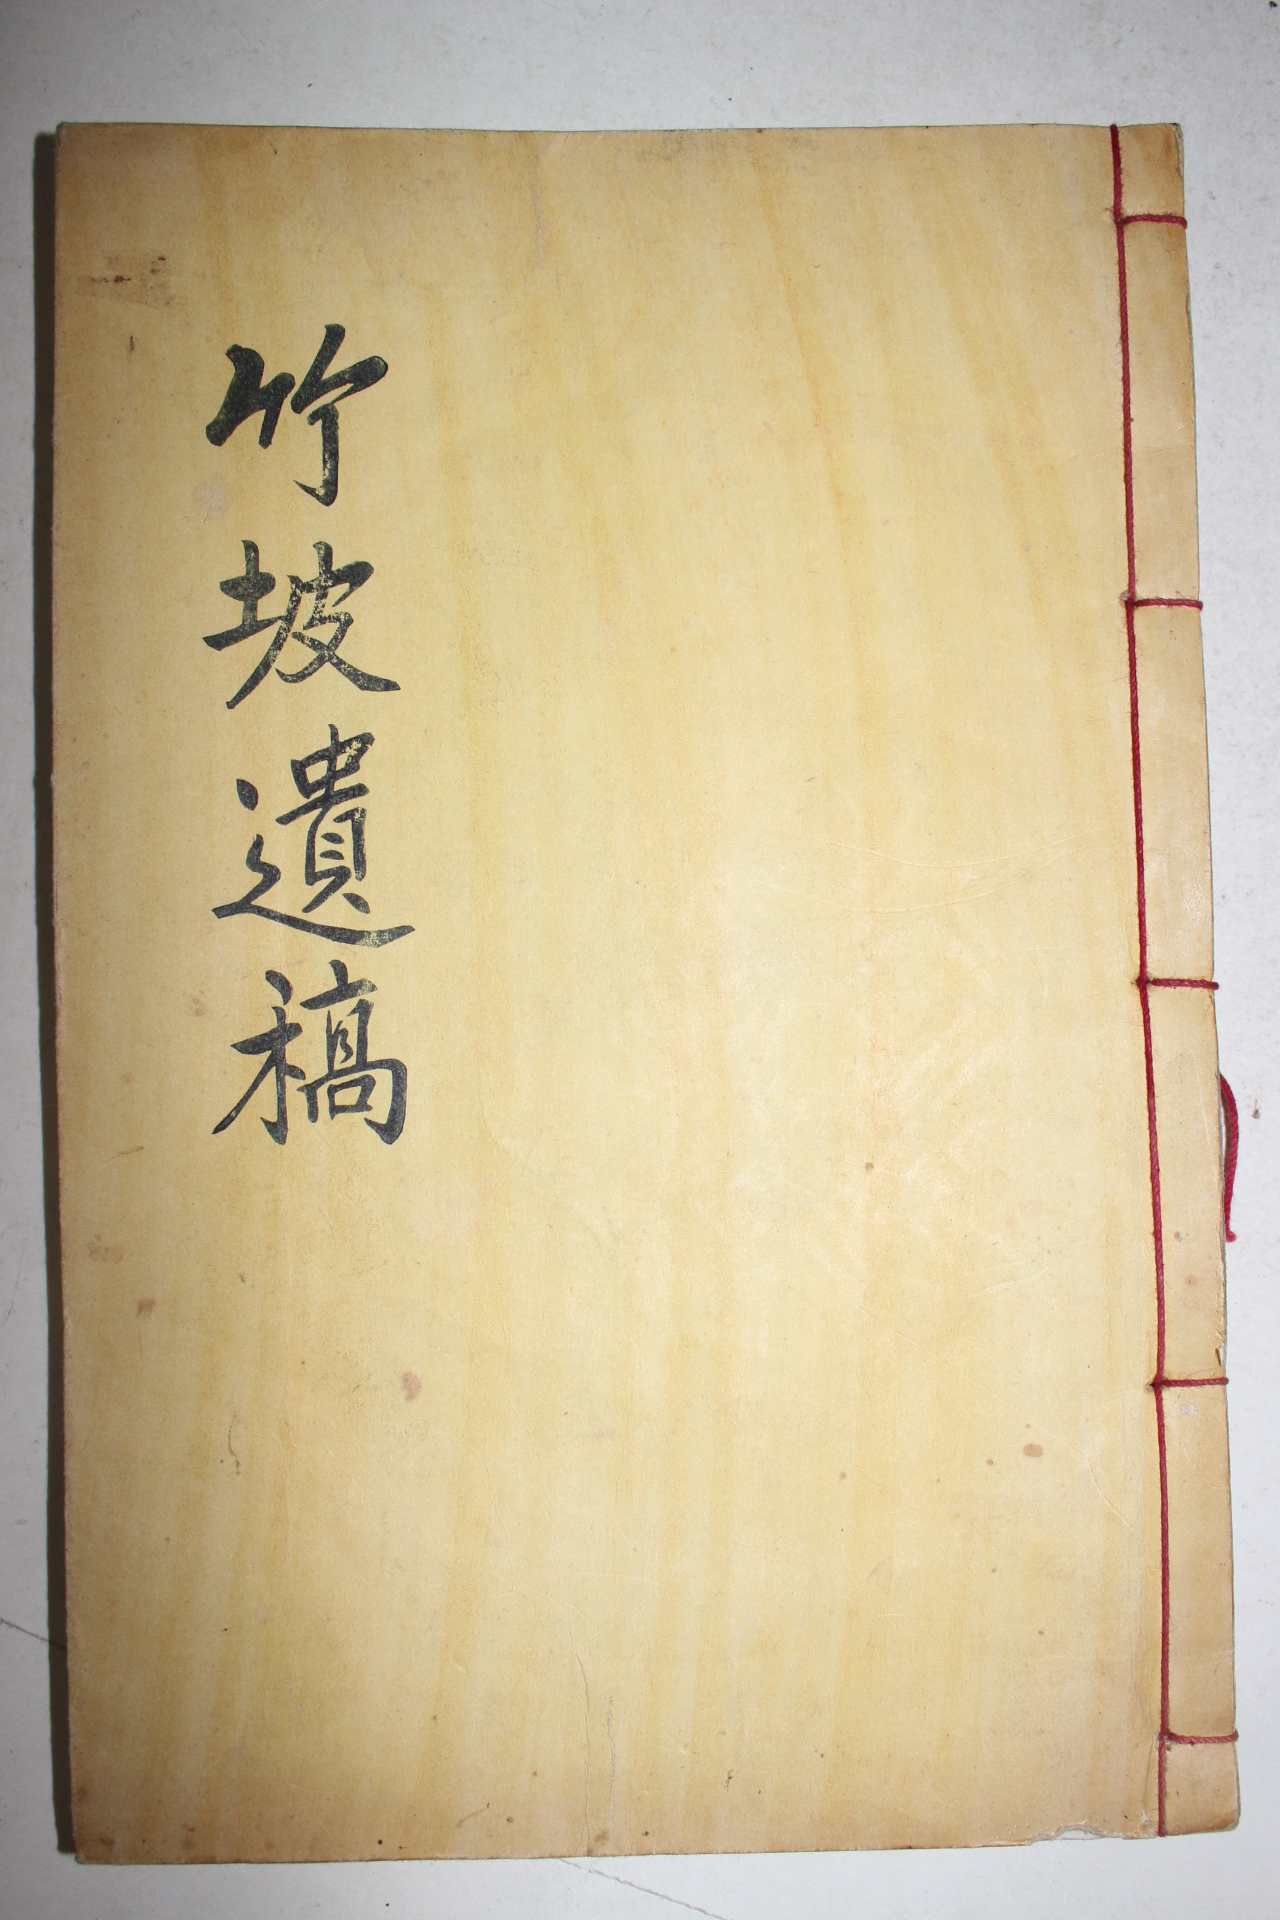 竹坡遺稿